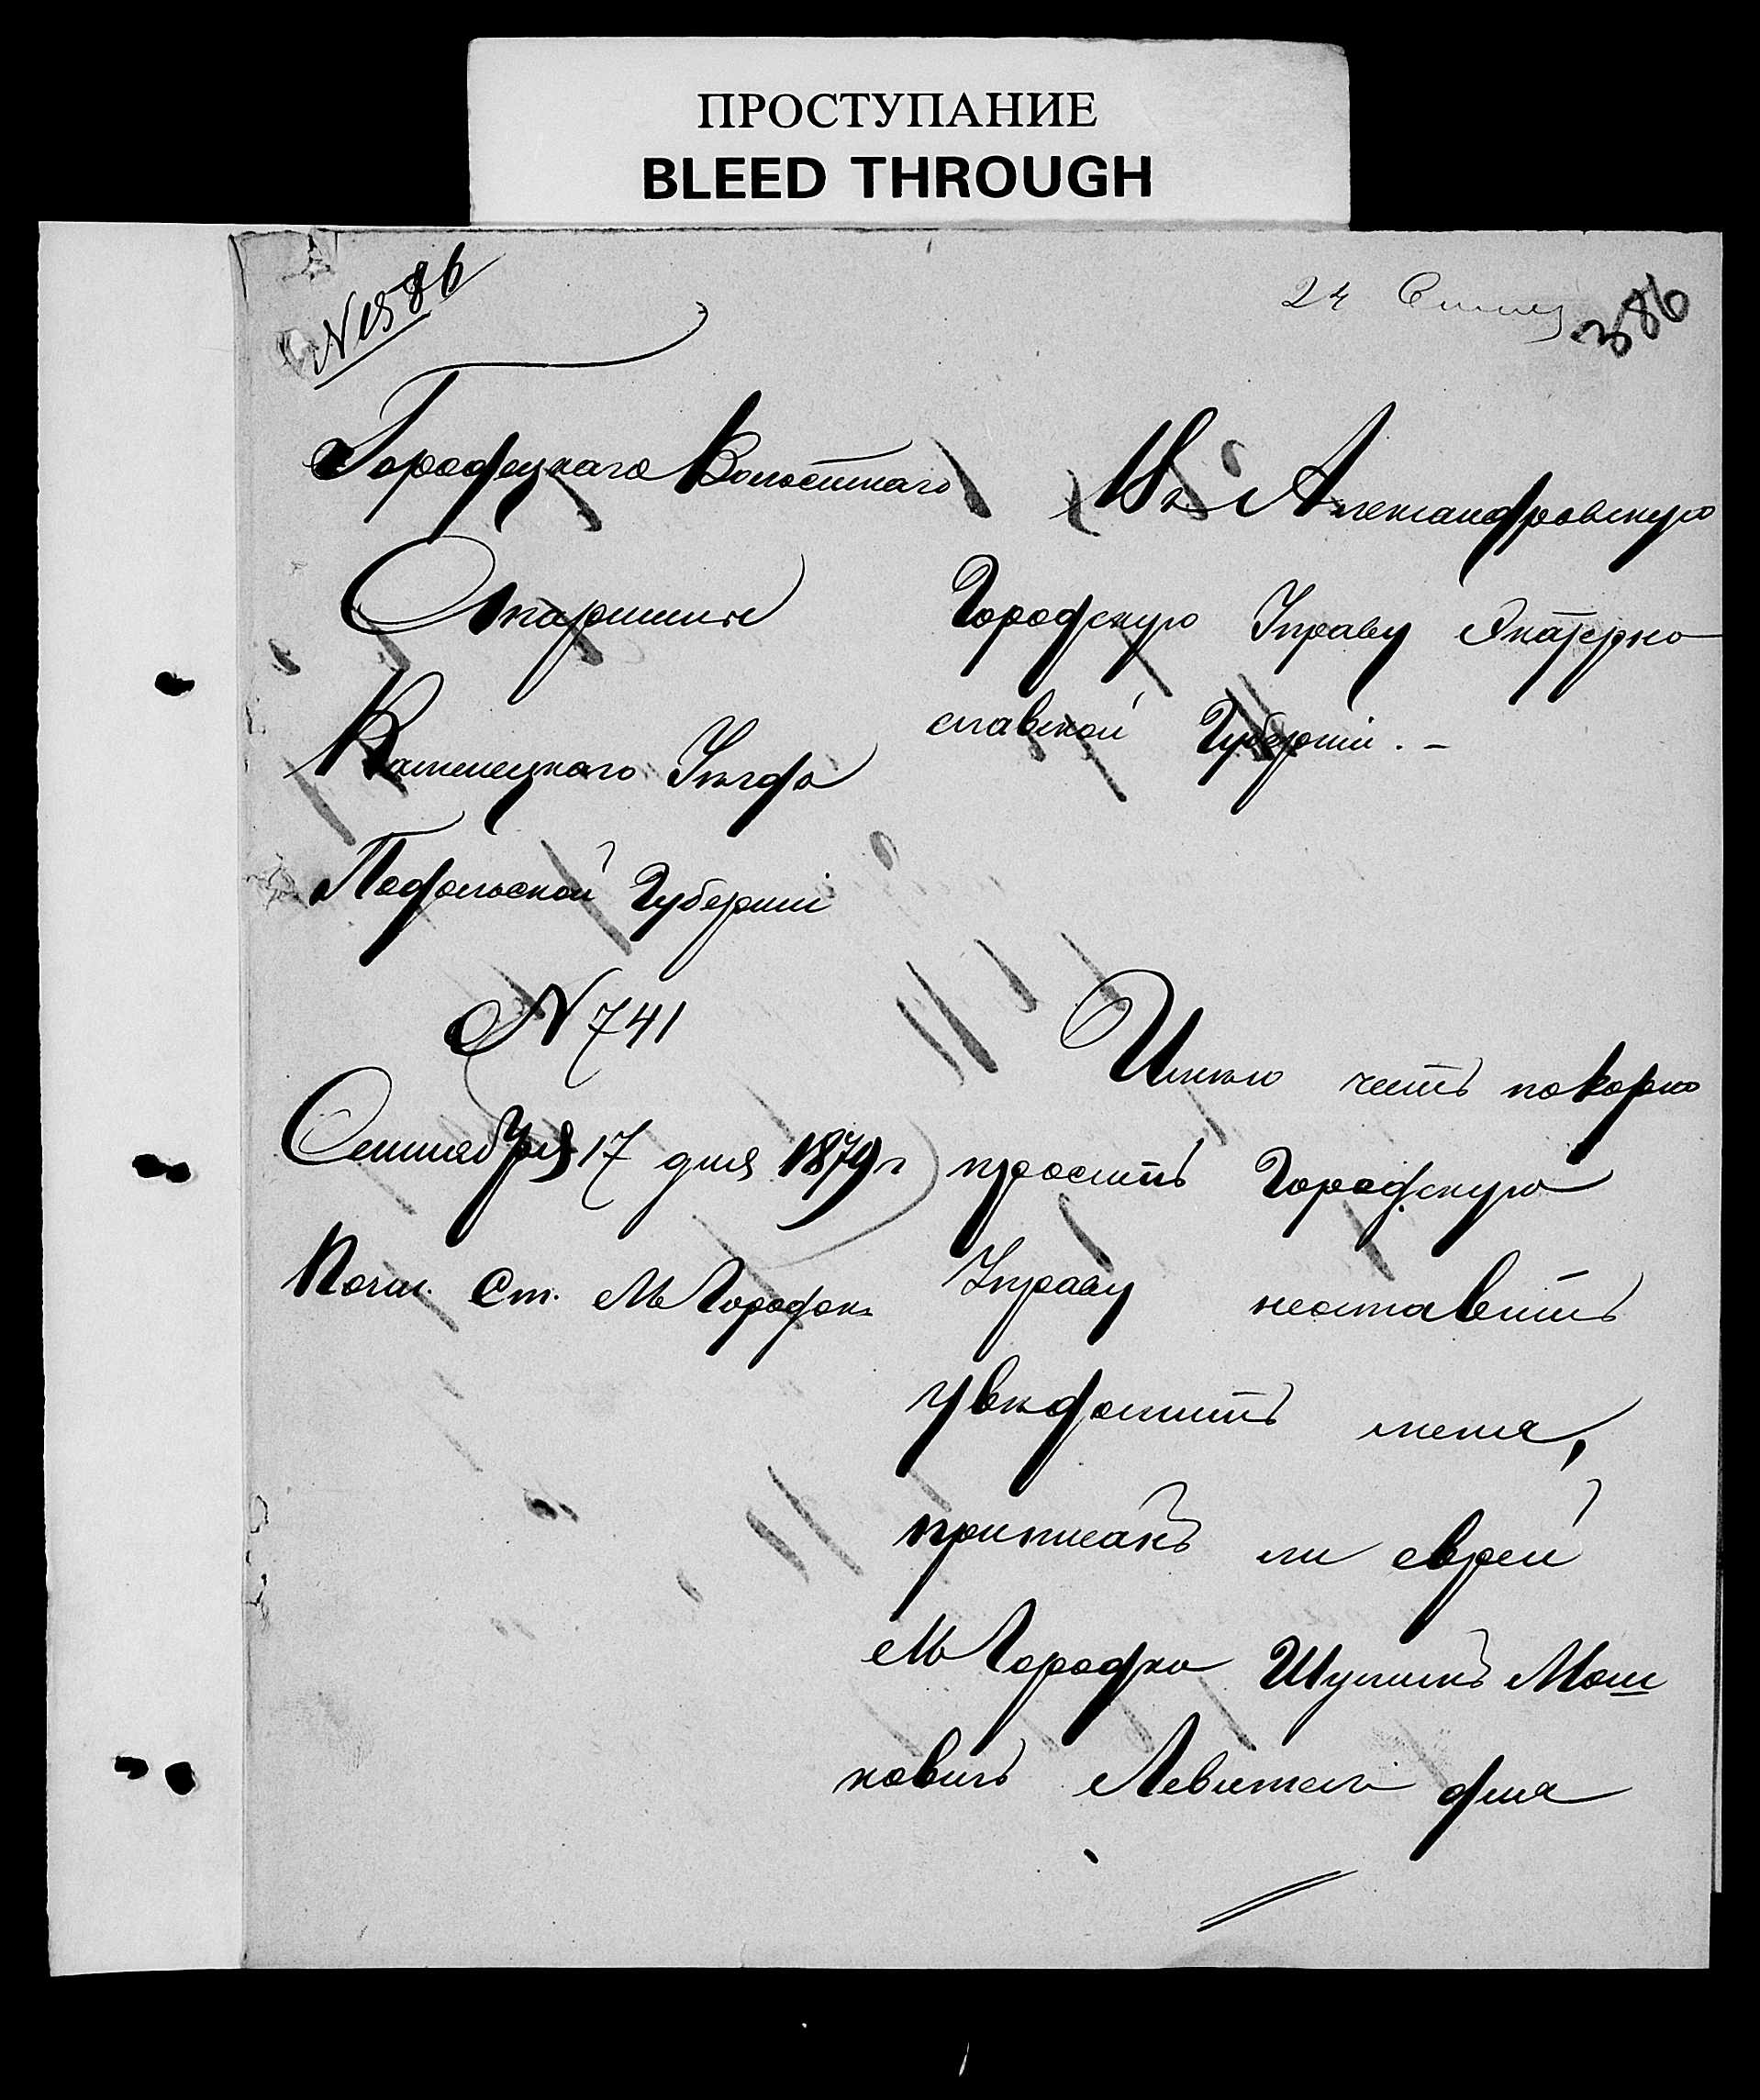 ПРОСТУПАНИЕ
BLEED THROUGH
№ 1586
24 Сент
386
Городецкаго Волостнаго
Старшины
Каменецкаго Уѣзда
Подольской Губерніи
№ 741
Сентября 17 дня 1879 г
Почт. Ст. М Городокъ
Въ Александровскую
Городскую Управу Екатерино
славской Губерніи. –
Имѣю честь покорно
просить Городскую
Управу неоставить
увѣдомить меня,
приписанъ ли еврей
М Городка Шулимъ Мош
ковичъ Левитанъ для